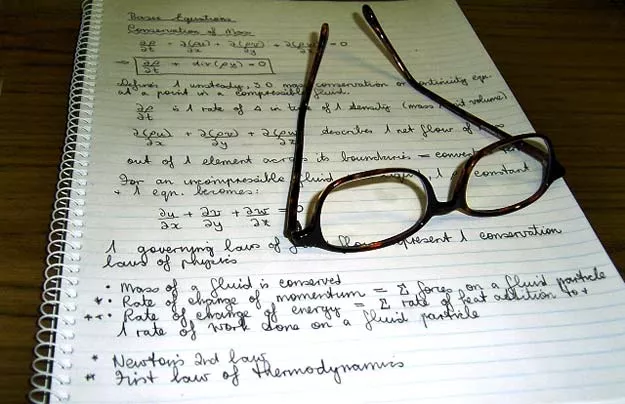 Basic Equations
Conservation of Mass
∂ρ/∂t + ∂(ρu)/∂x + ∂(ρv)/∂y + ∂(ρw)/∂z = 0
⇒ ∂ρ/∂t + div(ρv) = 0
Defines 1 unsteady, 3D mass conservation or continuity eqn.
at a point in a compressible fluid.
∂ρ/∂t is 1 rate of Δ in time of 1 density (mass unit volume)
∂(ρu)/∂x + ∂(ρv)/∂y + ∂(ρw)/∂z describes 1 net flow of
out of 1 element across its boundaries =
For an incompressible fluid 1 constant
+ 1 eqn. becomes:
∂u/∂x + ∂v/∂y + ∂w/∂z = 0
1 governing laws of flow represent 1 conservation
laws of physics
· Mass of a fluid is conserved
*· Rate of change of momentum = Σ forces on a fluid particle
**· Rate of change of energy = Σ rate of heat addition to +
1 rate of work done on a fluid particle
* Newton's 2nd law
** First law of thermodynamics